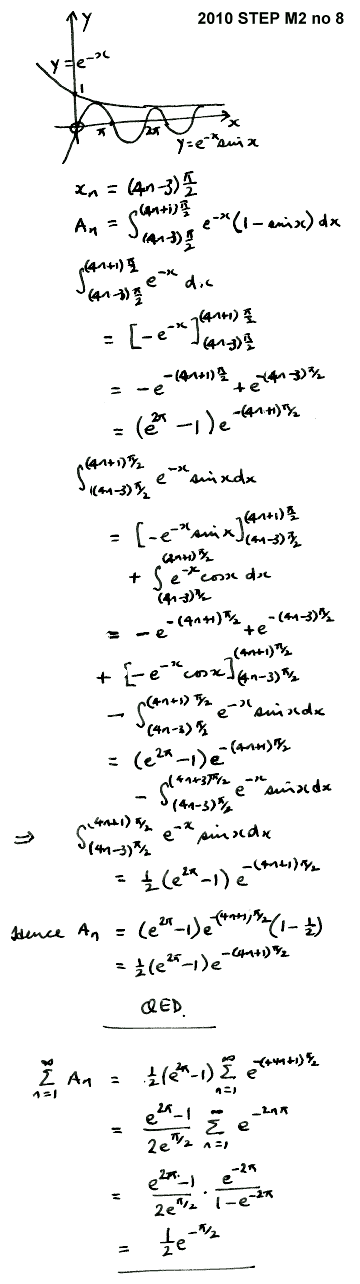 2010 STEP M2 no 8
y
y = e^{-x}
1
π 2π x
y = e^{-x} sin x
x_n = (4n-3) π/2
A_n = ∫_{(4n-3)π/2}^{(4n+1)π/2} e^{-x} (1 - sin x) dx
∫_{(4n-3)π/2}^{(4n+1)π/2} e^{-x} dx
= [-e^{-x}]_{(4n-3)π/2}^{(4n+1)π/2}
= -e^{-(4n+1)π/2} + e^{-(4n-3)π/2}
= (e^{2π} - 1) e^{-(4n+1)π/2}
∫_{(4n-3)π/2}^{(4n+1)π/2} e^{-x} sin x dx
= [-e^{-x} sin x]_{(4n-3)π/2}^{(4n+1)π/2}
+ ∫_{(4n-3)π/2}^{(4n+1)π/2} e^{-x} cos x dx
= -e^{-(4n+1)π/2} + e^{-(4n-3)π/2}
+ [-e^{-x} cos x]_{(4n-3)π/2}^{(4n+1)π/2}
- ∫_{(4n-3)π/2}^{(4n+1)π/2} e^{-x} sin x dx
= (e^{2π} - 1) e^{-(4n+1)π/2}
- ∫_{(4n-3)π/2}^{(4n+3)π/2} e^{-x} sin x dx
⇒ ∫_{(4n-3)π/2}^{(4n+1)π/2} e^{-x} sin x dx
= 1/2 (e^{2π} - 1) e^{-(4n+1)π/2}
Hence A_n = (e^{2π} - 1) e^{-(4n+1)π/2} (1 - 1/2)
= 1/2 (e^{2π} - 1) e^{-(4n+1)π/2}
QED.
∑_{n=1}^{∞} A_n = 1/2 (e^{2π} - 1) ∑_{n=1}^{∞} e^{-(4n+1)π/2}
= (e^{2π} - 1)/(2e^{π/2}) ∑_{n=1}^{∞} e^{-2nπ}
= (e^{2π} - 1)/(2e^{π/2}) · e^{-2π}/(1 - e^{-2π})
= 1/2 e^{-π/2}